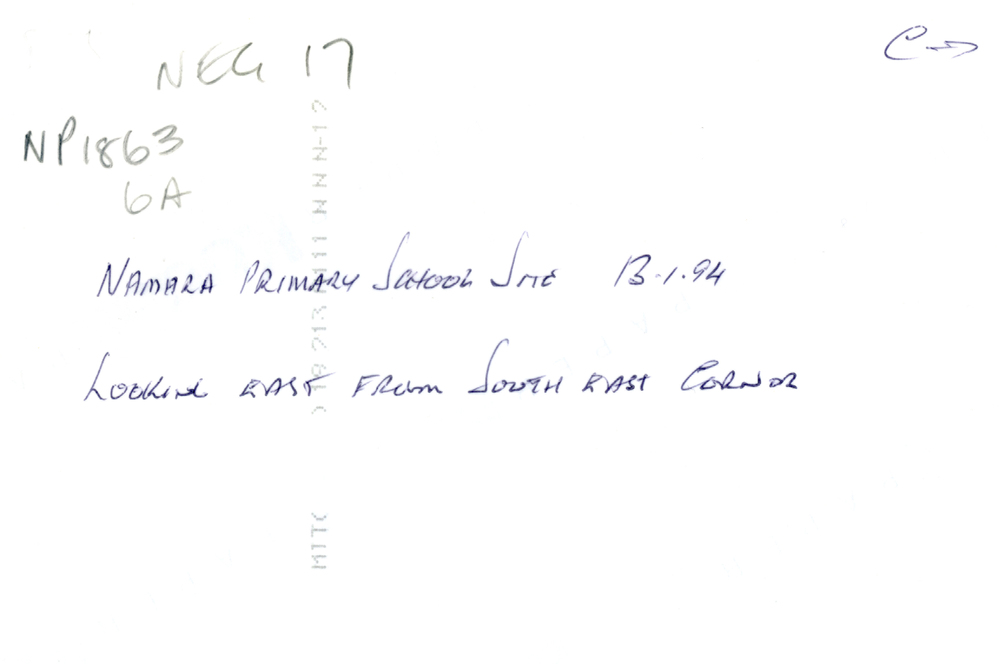 C→
NEG 17
NP1863
6A
NAMARA PRIMARY SCHOOL SITE 13.1.94
LOOKING EAST FROM SOUTH EAST CORNOR